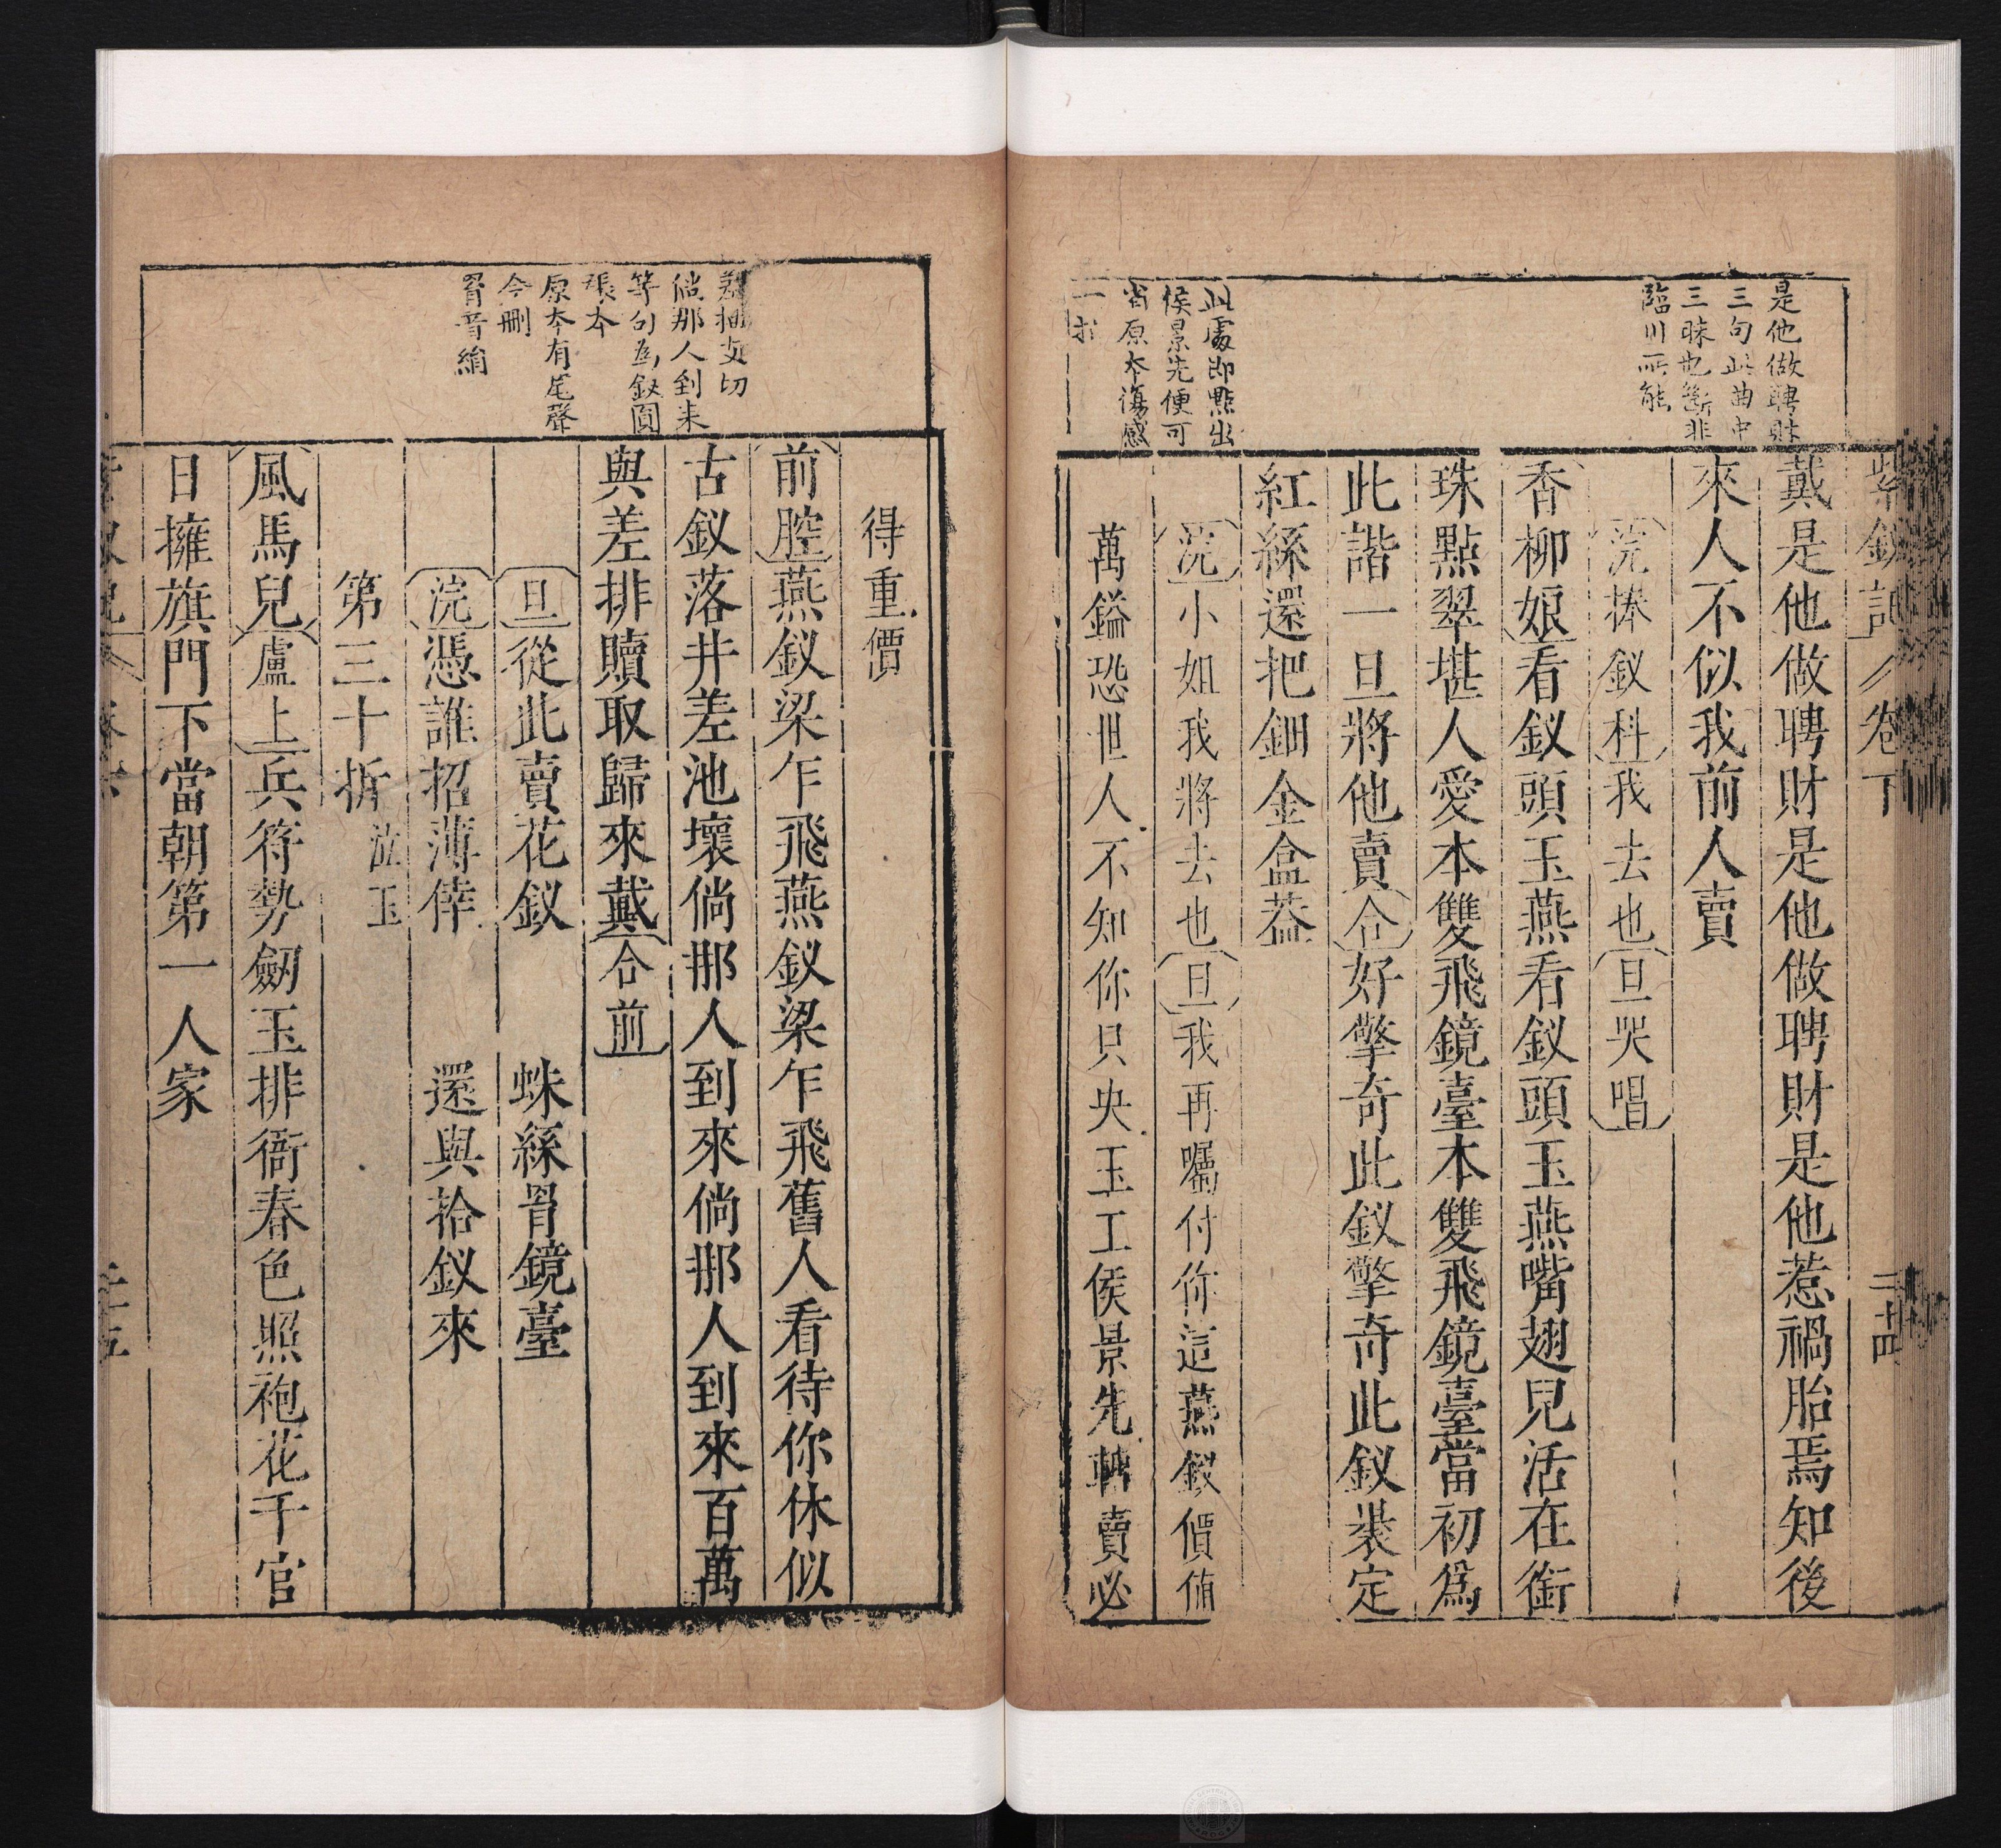 紫釵記 卷下 二十四
是他做聘財
三句此曲中
三昧也斷非
臨川所能
此處即點出
侯景先便可
省原本傷感
一折
戴是他做聘財是他做聘財是他惹禍胎焉知後
來人不似我前人賣
浣捧釵科我去也旦哭唱
香柳娘看釵頭玉燕看釵頭玉燕嘴翅兒活在銜
珠點翠堪人愛本雙飛鏡臺本雙飛鏡臺當初為
此諧一旦將他賣合好擎奇此釵擎奇此釵裝定
紅絲還把鈿金盒葢
浣小姐我將去也旦我再囑付你這燕釵價值
萬鎰恐世人不知你只央玉工侯景先轉賣必
差抽支切
倘那人到来
等句為釵圓
張本
原本有尾聲
今刪
罥音絹
得重價
前腔燕釵梁乍飛燕釵梁乍飛舊人看待你休似
古釵落井差池壞倘那人到來倘那人到來百萬
與差排贖取歸來戴合前
旦從此賣花釵 蛛絲罥鏡臺
浣憑誰招薄倖 還與拾釵來
第三十折 泣玉
風馬兒盧上兵符勢劒玉排衙春色照袍花千官
日擁旗門下當朝第一人家